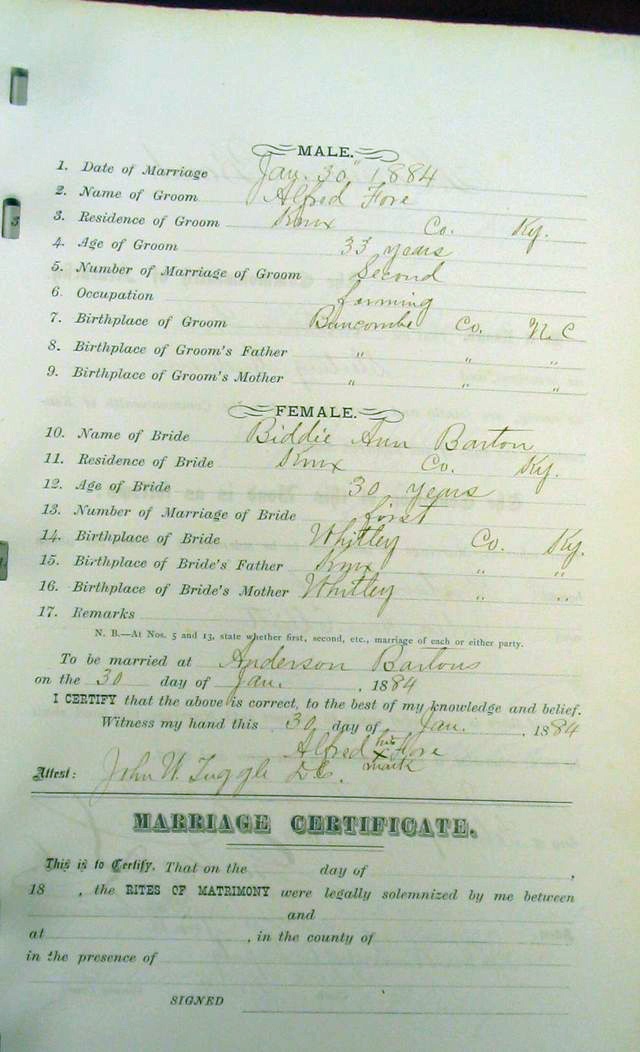 MALE.
1. Date of Marriage Jan. 30" 1884
2. Name of Groom Alfred Hore
3. Residence of Groom Knox Co. Ky.
4. Age of Groom 33 years
5. Number of Marriage of Groom Second
6. Occupation farming
7. Birthplace of Groom Buncombe Co. N.C
8. Birthplace of Groom's Father " " "
9. Birthplace of Groom's Mother " " "
FEMALE.
10. Name of Bride Biddie Ann Barton
11. Residence of Bride Knox Co. Ky.
12. Age of Bride 30 years
13. Number of Marriage of Bride first
14. Birthplace of Bride Whitley Co. Ky.
15. Birthplace of Bride's Father Knox " "
16. Birthplace of Bride's Mother Whitley " "
17. Remarks
N. B.—At Nos. 5 and 13, state whether first, second, etc., marriage of each or either party.
To be married at Anderson Bartons
on the 30 day of Jan. , 1884
I CERTIFY that the above is correct, to the best of my knowledge and belief.
Witness my hand this 30 day of Jan. , 1884
Alfred his x mark Hore
Attest: John W. Tuggle D.C.
MARRIAGE CERTIFICATE.
This is to Certify, That on the day of ,
18 , the RITES OF MATRIMONY were legally solemnized by me between
and
at , in the county of
in the presence of
SIGNED